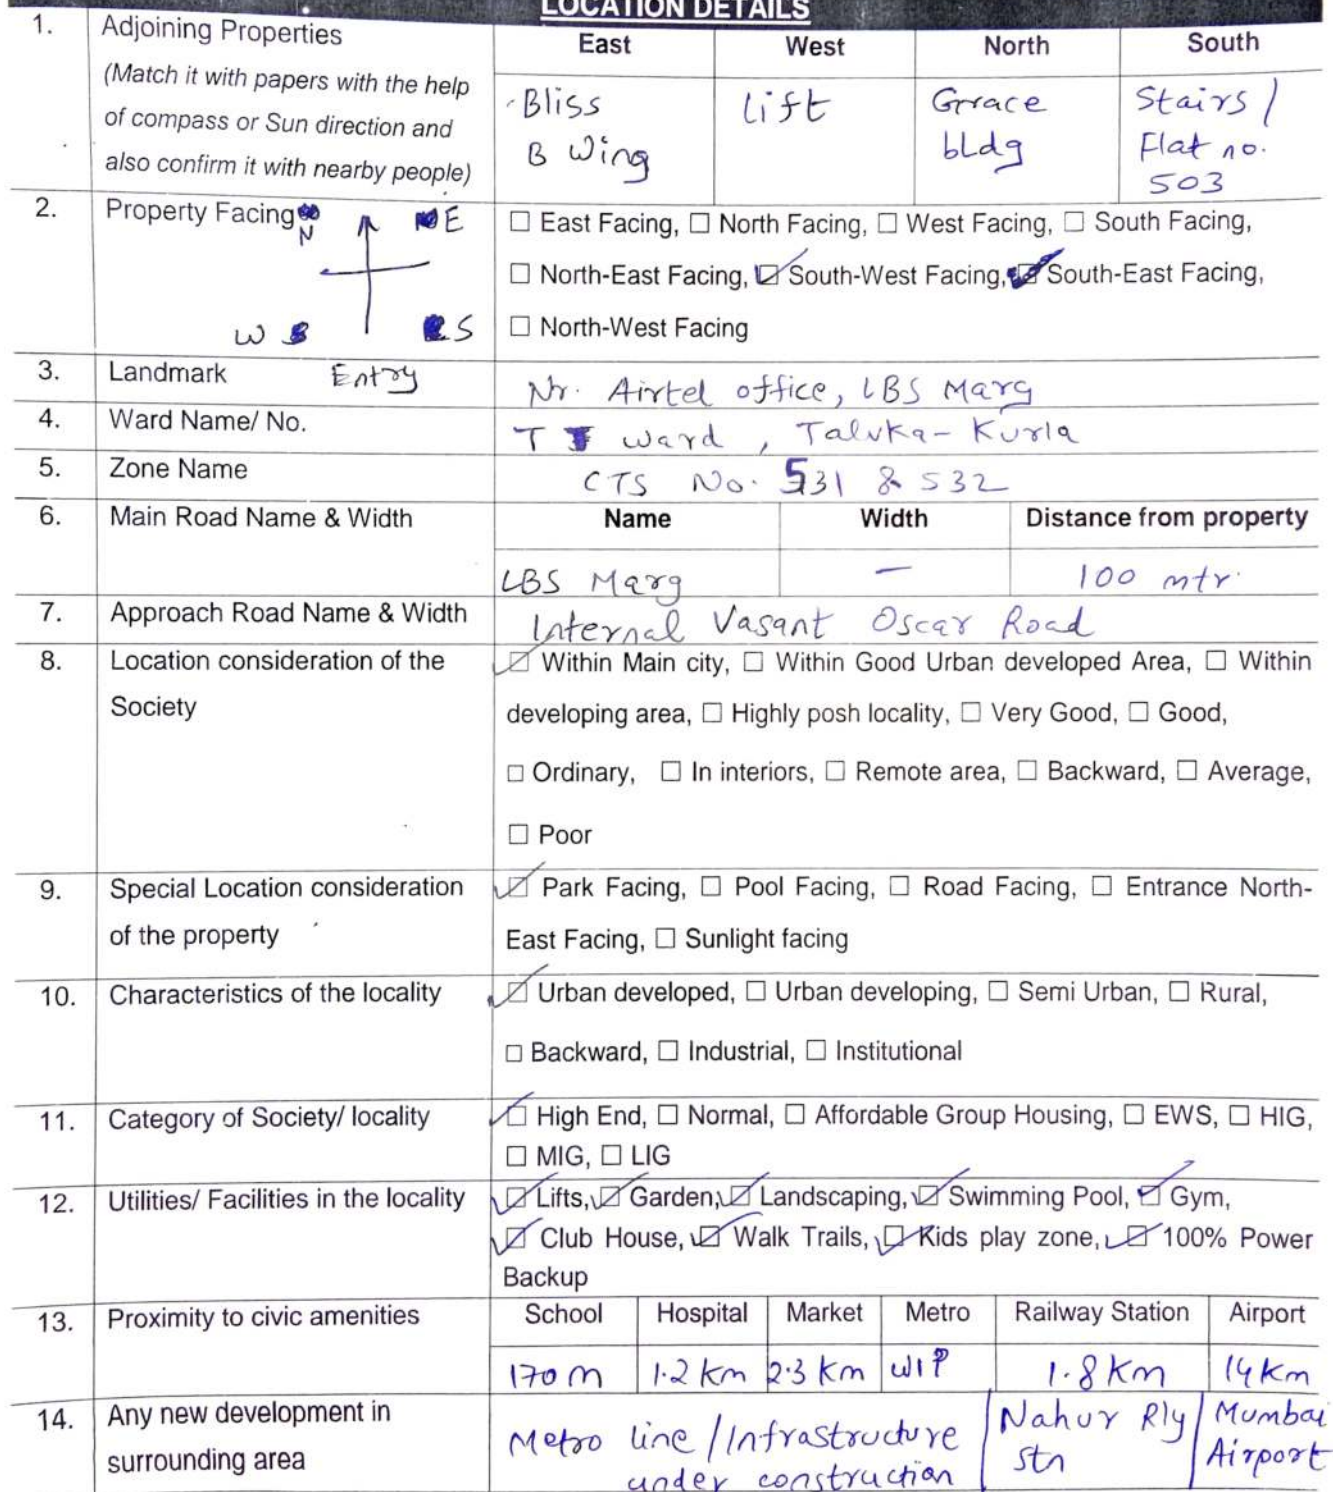 LOCATION DETAILS
1. Adjoining Properties
(Match it with papers with the help
of compass or Sun direction and
also confirm it with nearby people)
East West North South
Bliss
B Wing
Lift
Grace
bldg
Stairs /
Flat no.
503
2. Property Facing
N E
W S
Entry
☐ East Facing, ☐ North Facing, ☐ West Facing, ☐ South Facing,
☐ North-East Facing, ☑ South-West Facing, ☑ South-East Facing,
☐ North-West Facing
3. Landmark
Nr. Airtel office, LBS Marg
4. Ward Name/ No.
T ward , Taluka- Kurla
5. Zone Name
CTS No. 531 & 532
6. Main Road Name & Width
Name Width Distance from property
LBS Marg — 100 mtr.
7. Approach Road Name & Width
Internal Vasant Oscar Road
8. Location consideration of the
Society
☑ Within Main city, ☐ Within Good Urban developed Area, ☐ Within
developing area, ☐ Highly posh locality, ☐ Very Good, ☐ Good,
☐ Ordinary, ☐ In interiors, ☐ Remote area, ☐ Backward, ☐ Average,
☐ Poor
9. Special Location consideration
of the property
☑ Park Facing, ☐ Pool Facing, ☐ Road Facing, ☐ Entrance North-
East Facing, ☐ Sunlight facing
10. Characteristics of the locality
☑ Urban developed, ☐ Urban developing, ☐ Semi Urban, ☐ Rural,
☐ Backward, ☐ Industrial, ☐ Institutional
11. Category of Society/ locality
☑ High End, ☐ Normal, ☐ Affordable Group Housing, ☐ EWS, ☐ HIG,
☐ MIG, ☐ LIG
12. Utilities/ Facilities in the locality
☑ Lifts, ☑ Garden, ☑ Landscaping, ☑ Swimming Pool, ☑ Gym,
☑ Club House, ☑ Walk Trails, ☑ Kids play zone, ☑ 100% Power
Backup
13. Proximity to civic amenities
School Hospital Market Metro Railway Station Airport
170 m 1.2 Km 2.3 Km WIP 1.8 Km 14 Km
14. Any new development in
surrounding area
Metro line / Infrastructure
under construction
Nahur Rly
stn
Mumbai
Airport